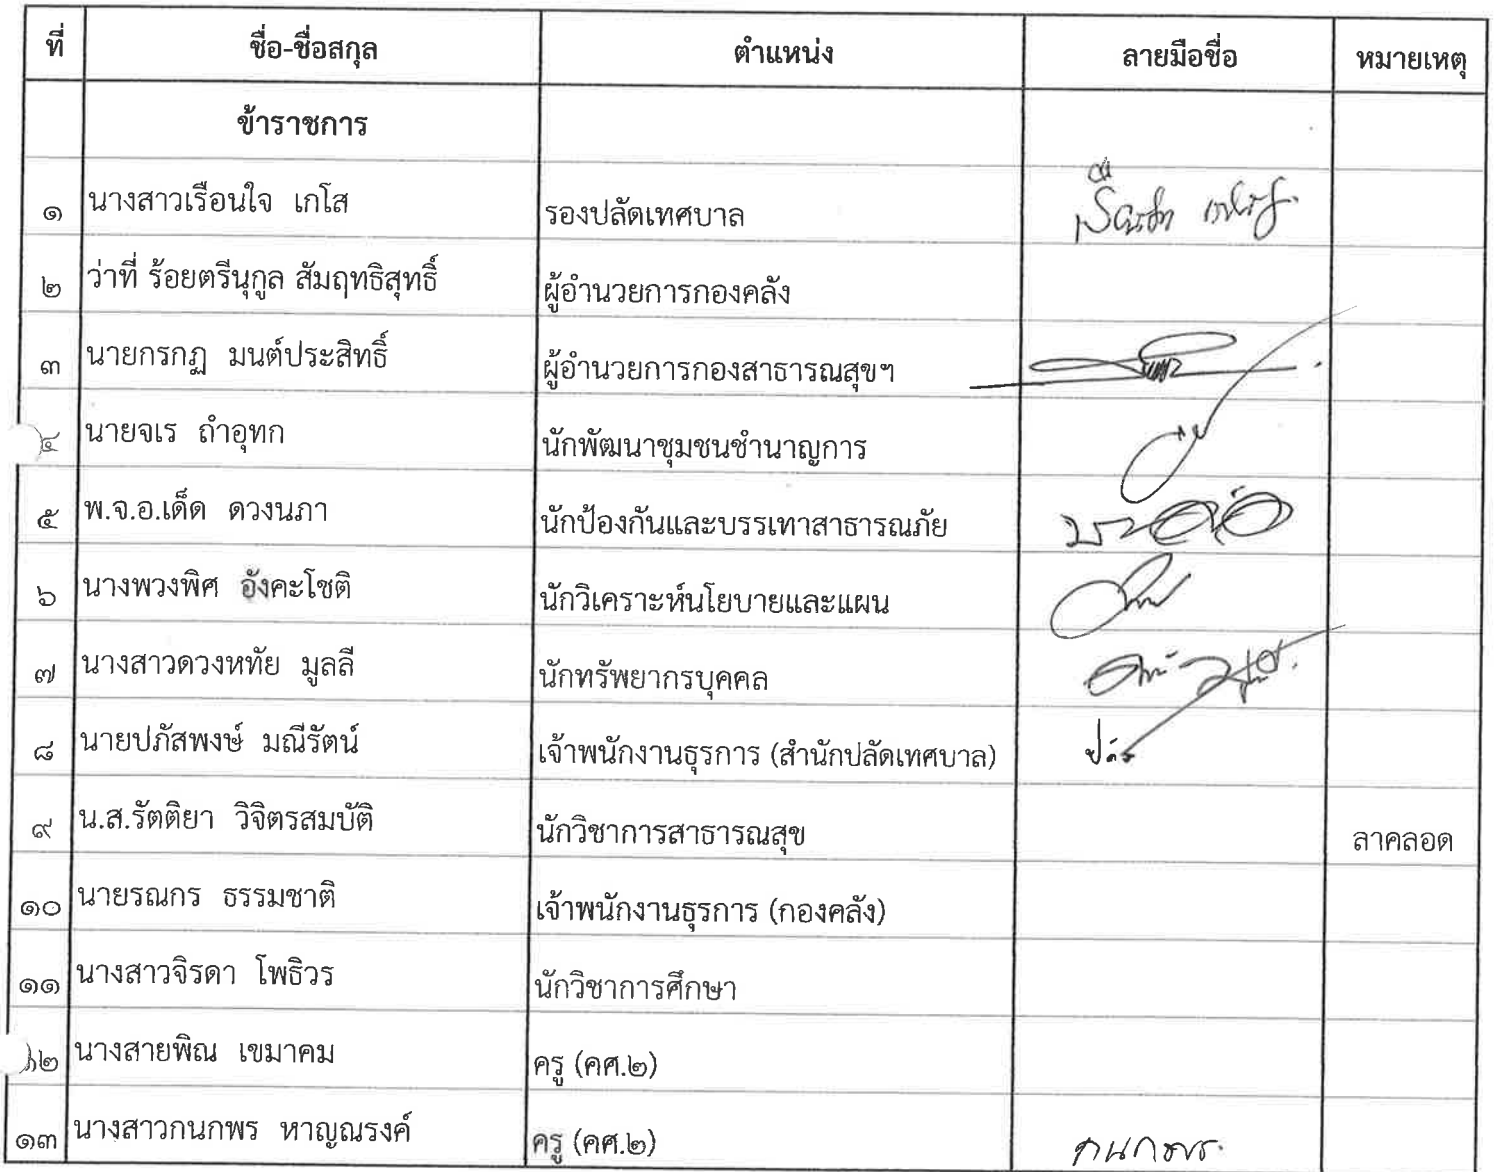 ที่ ชื่อ-ชื่อสกุล ตำแหน่ง ลายมือชื่อ หมายเหตุ
ข้าราชการ
๑ นางสาวเรือนใจ เกโส รองปลัดเทศบาล
๒ ว่าที่ ร้อยตรีนุกูล สัมฤทธิสุทธิ์ ผู้อำนวยการกองคลัง
๓ นายกรกฏ มนต์ประสิทธิ์ ผู้อำนวยการกองสาธารณสุขฯ
๔ นายจเร ถำอุทก นักพัฒนาชุมชนชำนาญการ
๕ พ.จ.อ.เด็ด ดวงนภา นักป้องกันและบรรเทาสาธารณภัย
๖ นางพวงพิศ อังคะโชติ นักวิเคราะห์นโยบายและแผน
๗ นางสาวดวงหทัย มูลลี นักทรัพยากรบุคคล
๘ นายปภัสพงษ์ มณีรัตน์ เจ้าพนักงานธุรการ (สำนักปลัดเทศบาล)
๙ น.ส.รัตติยา วิจิตรสมบัติ นักวิชาการสาธารณสุข ลาคลอด
๑๐ นายรณกร ธรรมชาติ เจ้าพนักงานธุรการ (กองคลัง)
๑๑ นางสาวจิรดา โพธิวร นักวิชาการศึกษา
๑๒ นางสายพิณ เขมาคม ครู (คศ.๒)
๑๓ นางสาวกนกพร หาญณรงค์ ครู (คศ.๒) กนกพร